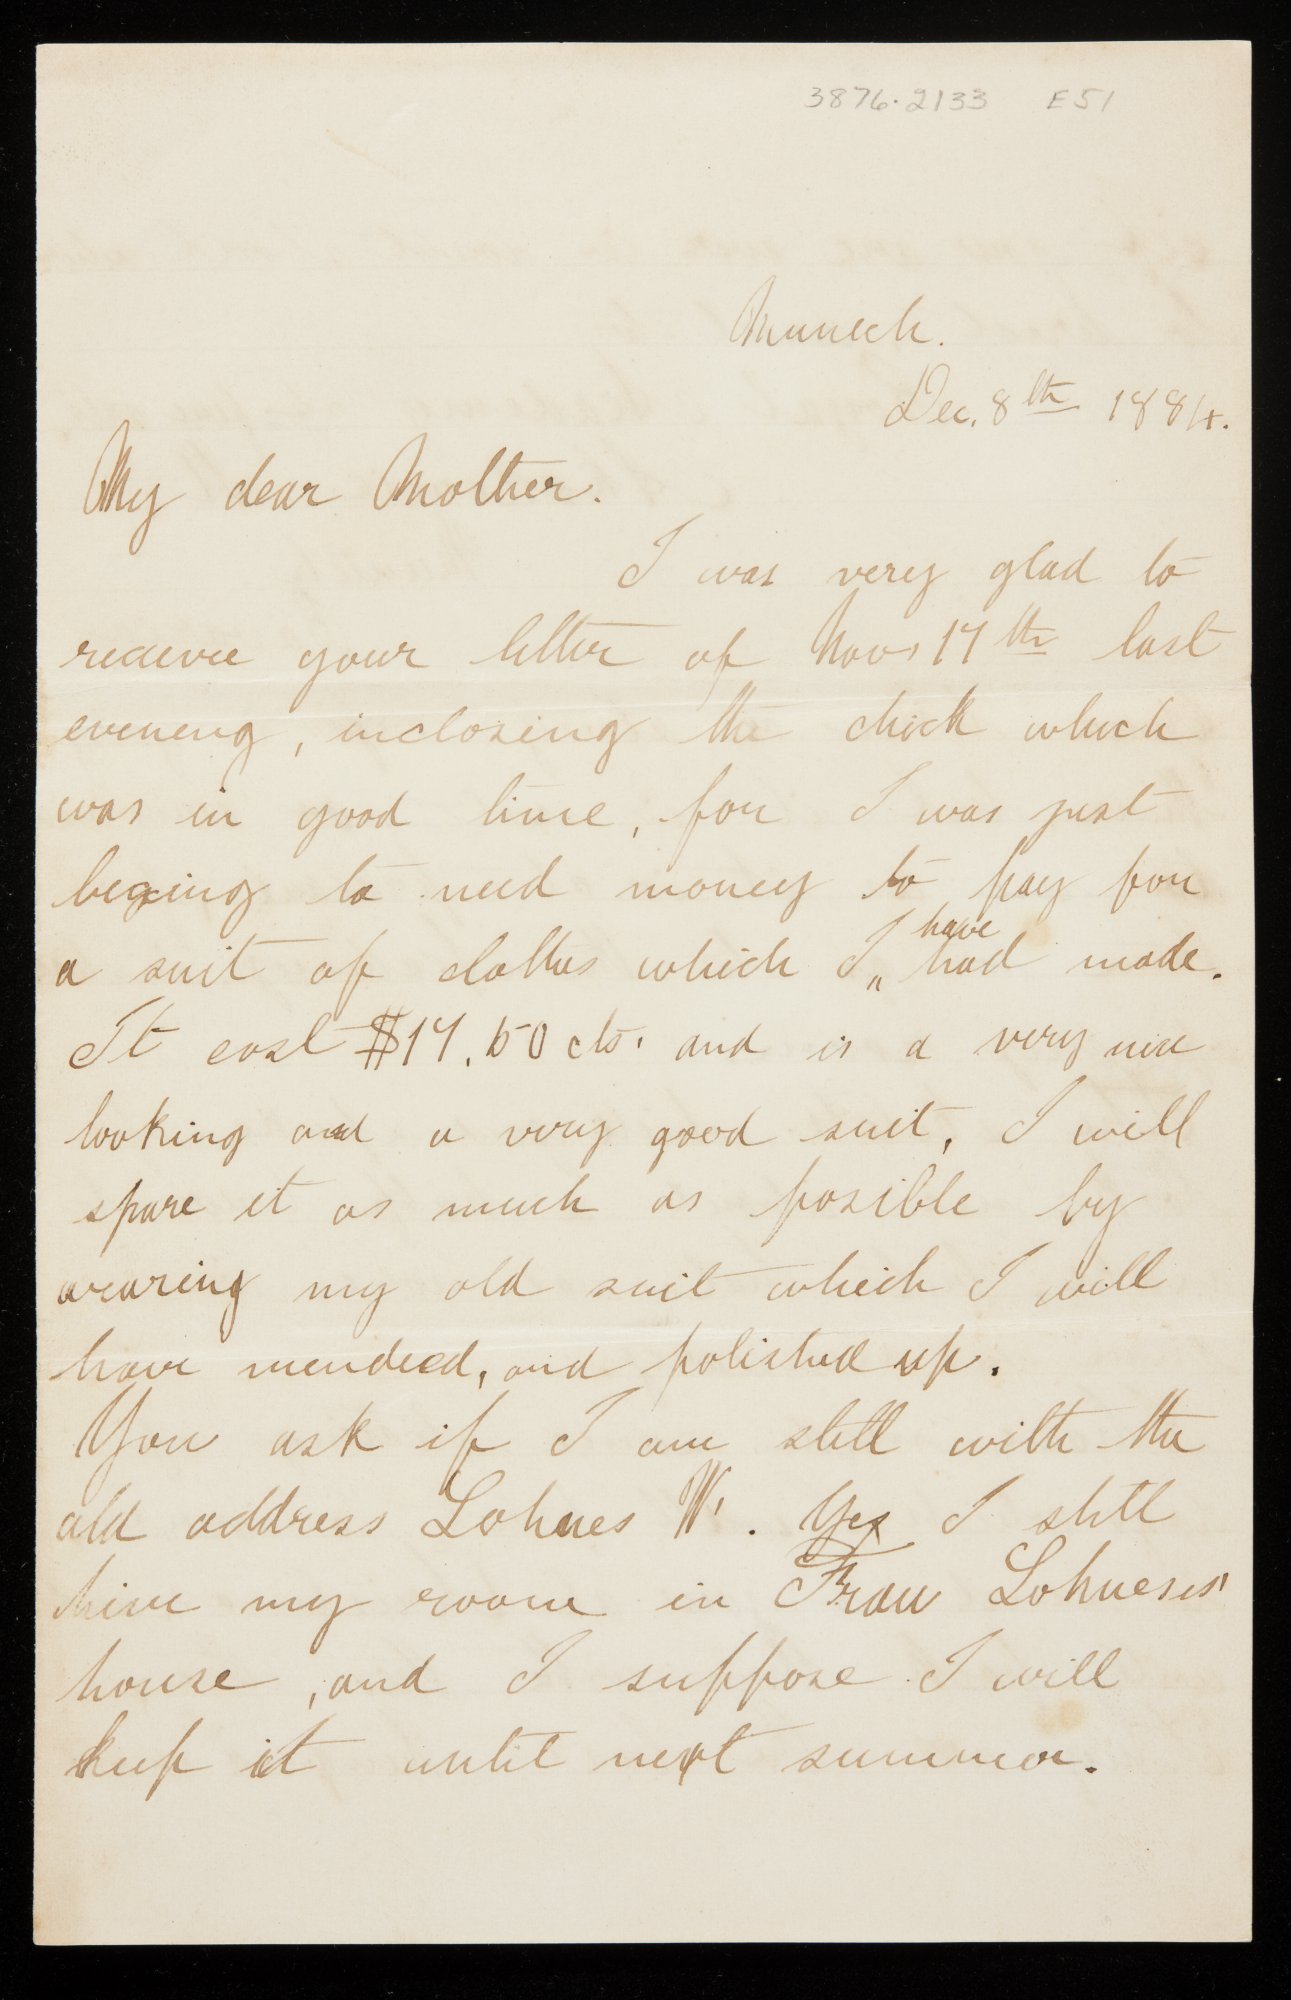 3876.2133 E51
Munich.
Dec. 8th 1884.
My dear Mother.
I was very glad to
receive your letter of Nov. 17th last
evening, inclosing the check which
was in good time, for I was just
begining to need money to pay for
a suit of clothes which I have had made.
It cost $17.50 cts. and is a very nice
looking and a very good suit, I will
spare it as much as posible by
wearing my old suit which I will
have mended, and polished up.
You ask if I am still with the
old address Lohues W. Yes I still
hire my room in Frau Lohueses'
house, and I suppose I will
keep it until next summer.